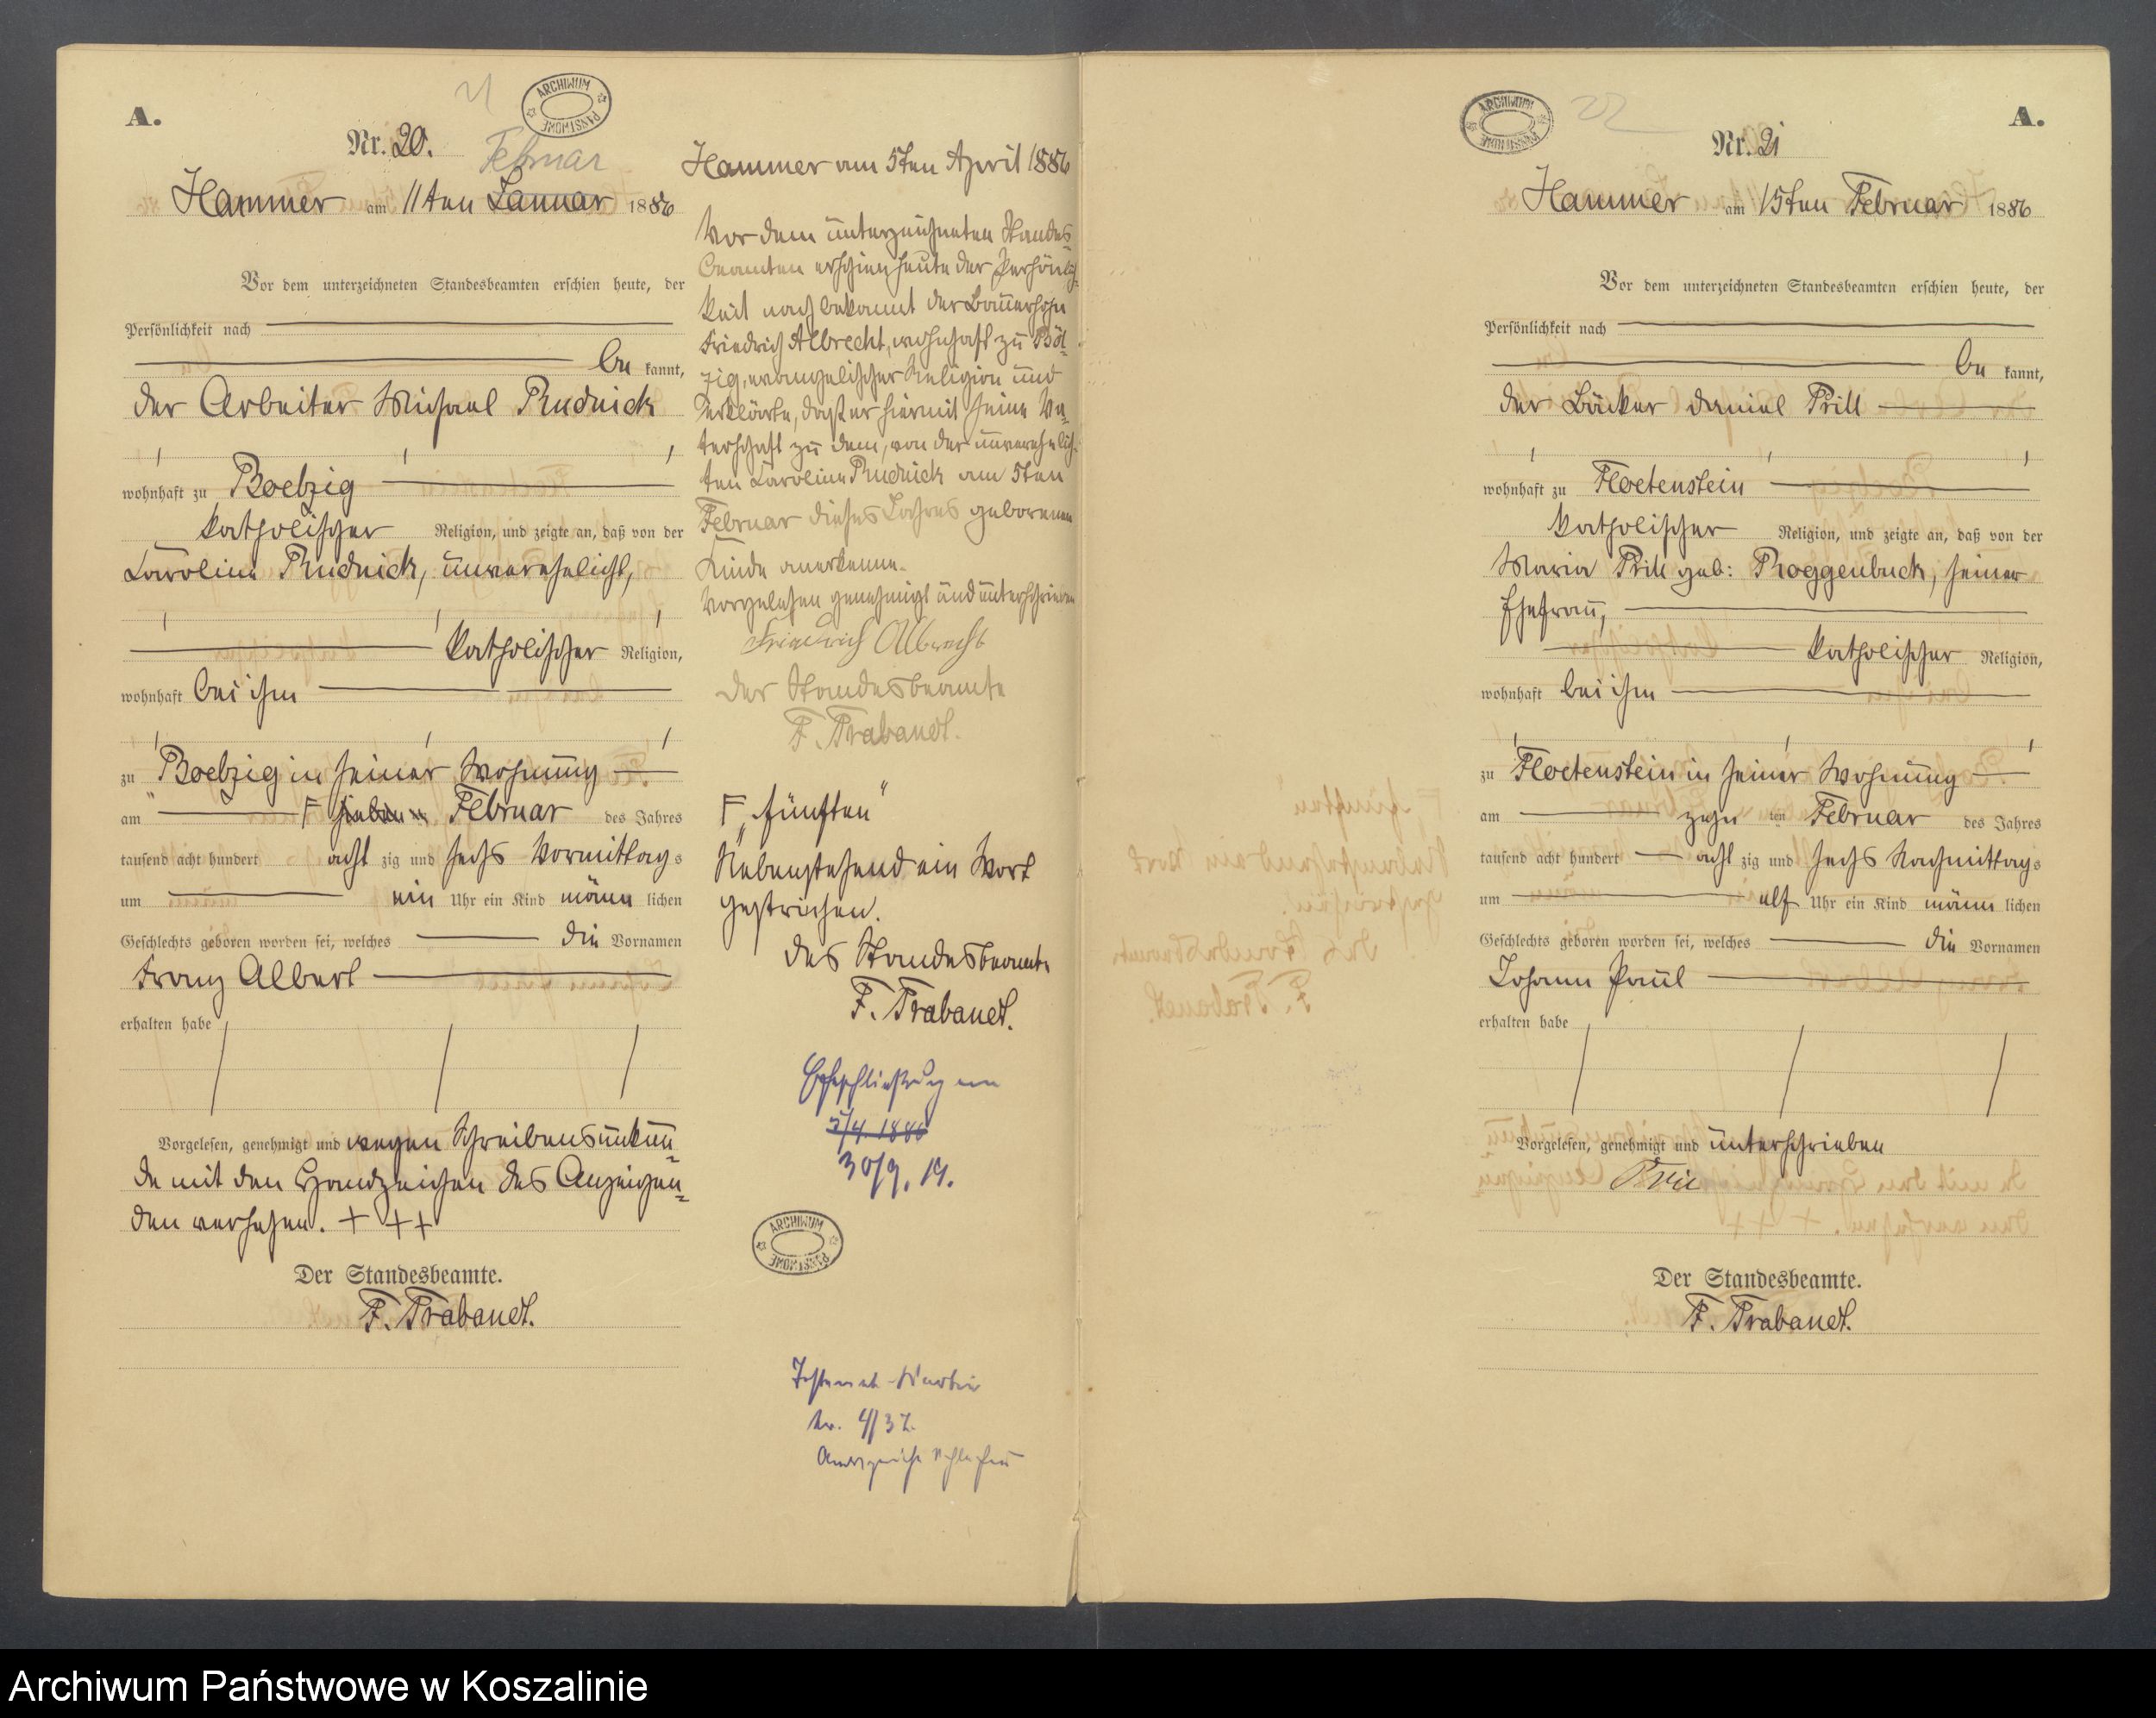 A.
21
ARCHIWUM PAŃSTWOWE
Nr. 20.
Februar
Hammer am 11ten Januar 1886
Vor dem unterzeichneten Standesbeamten erschien heute, der
Persönlichkeit nach
be kannt,
der Arbeiter Michael Rudnick
wohnhaft zu Boelzig
katholischer Religion, und zeigte an, daß von der
Caroline Rudnick, unverehelicht,
katholischer Religion,
wohnhaft bei ihm
zu Boelzig in seiner Wohnung
am F sieben ten Februar des Jahres
tausend acht hundert acht zig und sechs Vormittags
um ein Uhr ein Kind männ lichen
Geschlechts geboren worden sei, welches die Vornamen
Franz Albert
erhalten habe
Vorgelesen, genehmigt und wegen Schreibensunkun-
de mit den Handzeichen des Anzeigen-
den versehen. + ++
Der Standesbeamte.
F. Trabandt.
Hammer am 5ten April 1886
Vor dem unterzeichneten Standes-
beamten erschien heute der Persönlich-
keit nach bekannt der Bauersohn
Friedrich Albrecht, wohnhaft zu Böl-
zig, evangelischer Religion und
erklärte, daß er hiermit seine Va-
terschaft zu dem, von der unverehelich-
ten Caroline Rudnick am 5ten
Februar dieses Jahres geborenen
Kinde anerkenne.
Vorgelesen genehmigt und unterschrieben
Friedrich Albrecht
Der Standesbeamte
F. Trabandt.
F „fünften“
Nebenstehend ein Wort
gestrichen.
Der Standesbeamte
F. Trabandt.
Eheschließung am
5/4 1886
30/9. 19.
ARCHIWUM PAŃSTWOWE
Testament-Kartei
Nr. 4/37.
Amtsgericht Schlochau
ARCHIWUM PAŃSTWOWE
22
A.
Nr. 21
Hammer am 15ten Februar 1886
Vor dem unterzeichneten Standesbeamten erschien heute, der
Persönlichkeit nach
be kannt,
der Bäcker Daniel Prill
wohnhaft zu Floetenstein
katholischer Religion, und zeigte an, daß von der
Maria Prill geb: Roggenbuck, seiner
Ehefrau,
katholischer Religion,
wohnhaft bei ihm
zu Floetenstein in seiner Wohnung
am zehn ten Februar des Jahres
tausend acht hundert acht zig und sechs Nachmittags
um elf Uhr ein Kind männ lichen
Geschlechts geboren worden sei, welches die Vornamen
Johann Paul
erhalten habe
Vorgelesen, genehmigt und unterschrieben
Prill
Der Standesbeamte.
F. Trabandt.
Archiwum Państwowe w Koszalinie